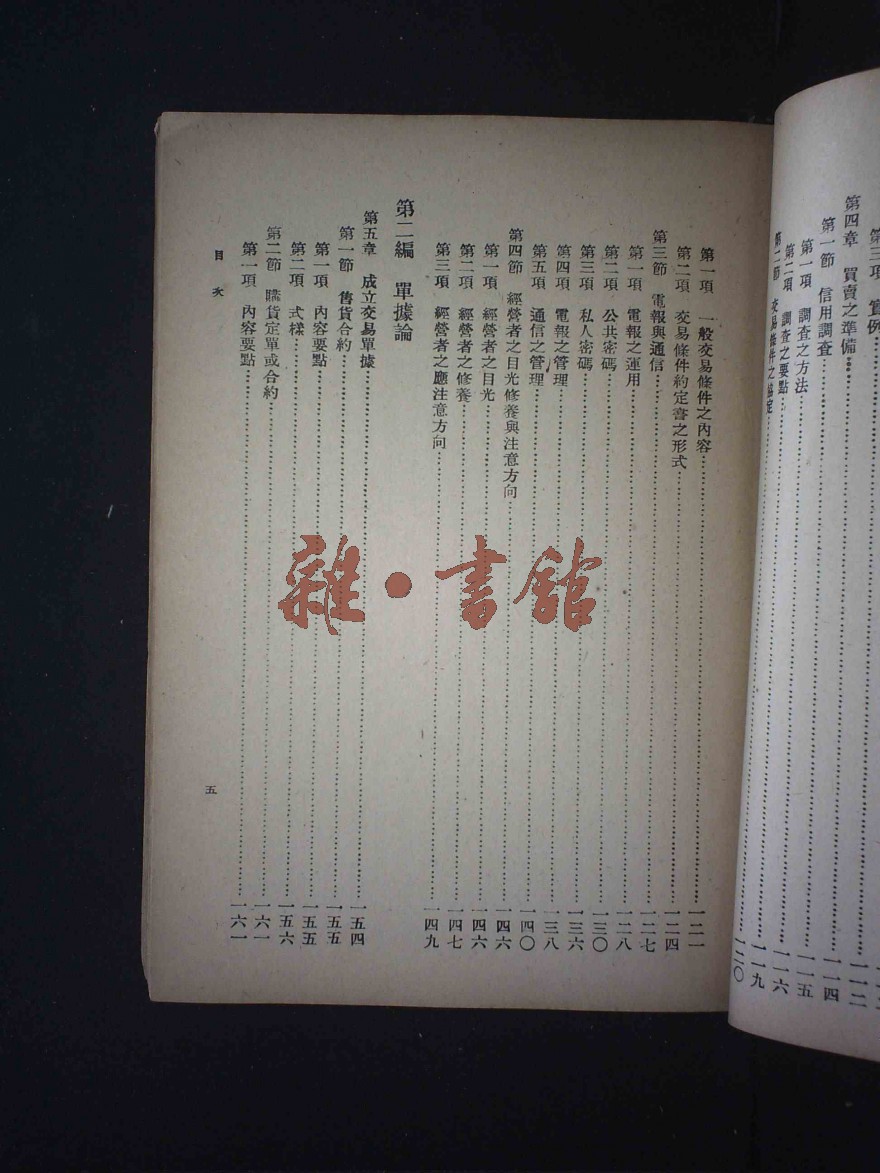 第三項 實例
第四章 買賣之準備……一一二
第一節 信用調查……一一四
第一項 調查之方法……一一五
第二項 調查之要點……一一六
第二節 交易條件之協定……一二〇
第一項 一般交易條件之內容……一二一
第二項 交易條件約定書之形式……一二四
第三節 電報與通信……一二七
第一項 電報之運用……一二八
第二項 公共密碼……一三〇
第三項 私人密碼……一三六
第四項 電報之管理……一三八
第五項 通信之管理……一四〇
第四節 經營者之目光修養與注意方向……一四六
第一項 經營者之目光……一四六
第二項 經營者之修養……一四七
第三項 經營者之應注意方向……一四九
第二編 單據論
第五章 成立交易單據……一五四
第一節 售貨合約……一五五
第一項 內容要點……一五五
第二項 式樣……一五六
第二節 購貨定單或合約……一六一
第一項 內容要點……一六一
目次
五
雜·書館